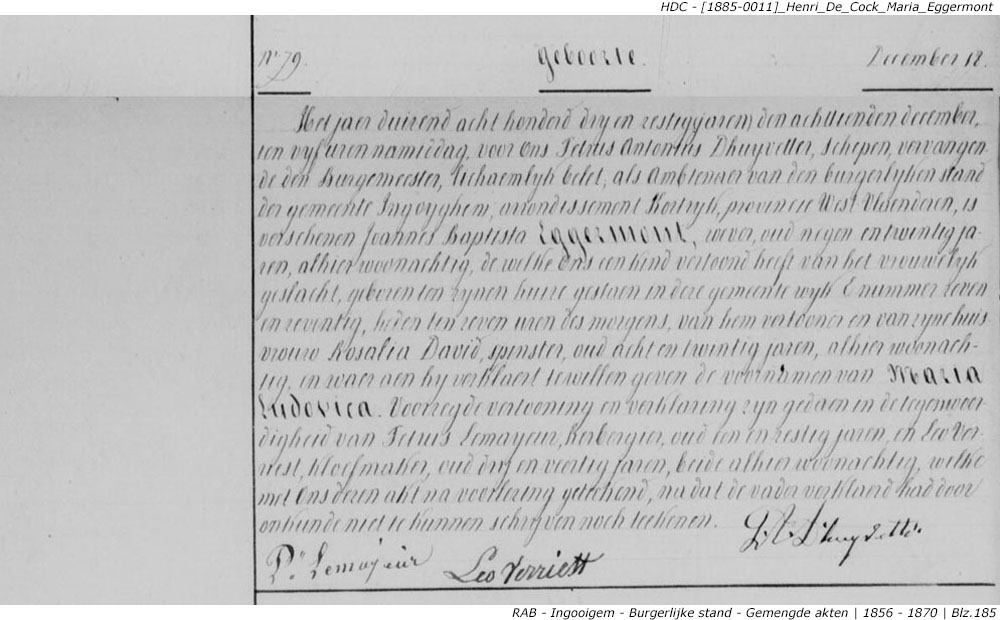 HDC - [1885-0011]_Henri_De_Cock_Maria_Eggermont
N.r 79. geboorte. December 18.
Het jaer duizend acht honderd dry en zestig jaren, den achttienden december,
ten vyf uren namiddag, voor Ons Petrus Antonius Dhuyvetter, schepen, vervangen-
de den Burgemeester, lichaemlyk belet, als Ambtenaer van den burgerlyken stand
der gemeente Ingoyghem, arrondissement Kortryk, provincie West Vlaenderen, is
verschenen Joannes Baptista Eggermont, wever, oud negen en twintig ja-
ren, alhier woonachtig, de welke Ons een kind vertoond heeft van het vrouwelyk
geslacht, geboren ten zynen huize gestaen in deze gemeente wyk E nummer zeven
en zeventig, heden ten zeven uren des morgens, van hem vertooner en van zyne huis-
vrouw Rosalia David, spinster, oud acht en twintig jaren, alhier woonach-
tig, en waer aen hy verklaert te willen geven de voornamen van Maria
Ludovica. Voorzegde vertooning en verklaring zyn gedaen in de tegenwoor-
digheid van Petrus Lemayeur, herbergier, oud een en zestig jaren, en Leo Ver-
riest, kloefmaker, oud dry en veertig jaren, beide alhier woonachtig, welke
met Ons dezen akt na voorlezing geteekend, na dat de vader verklaerd had door
onkunde niet te kunnen schryven noch teekenen.
P.r Lemayeur Leo Verriest Dhuyvetter
RAB - Ingooigem - Burgerlijke stand - Gemengde akten | 1856 - 1870 | Blz.185